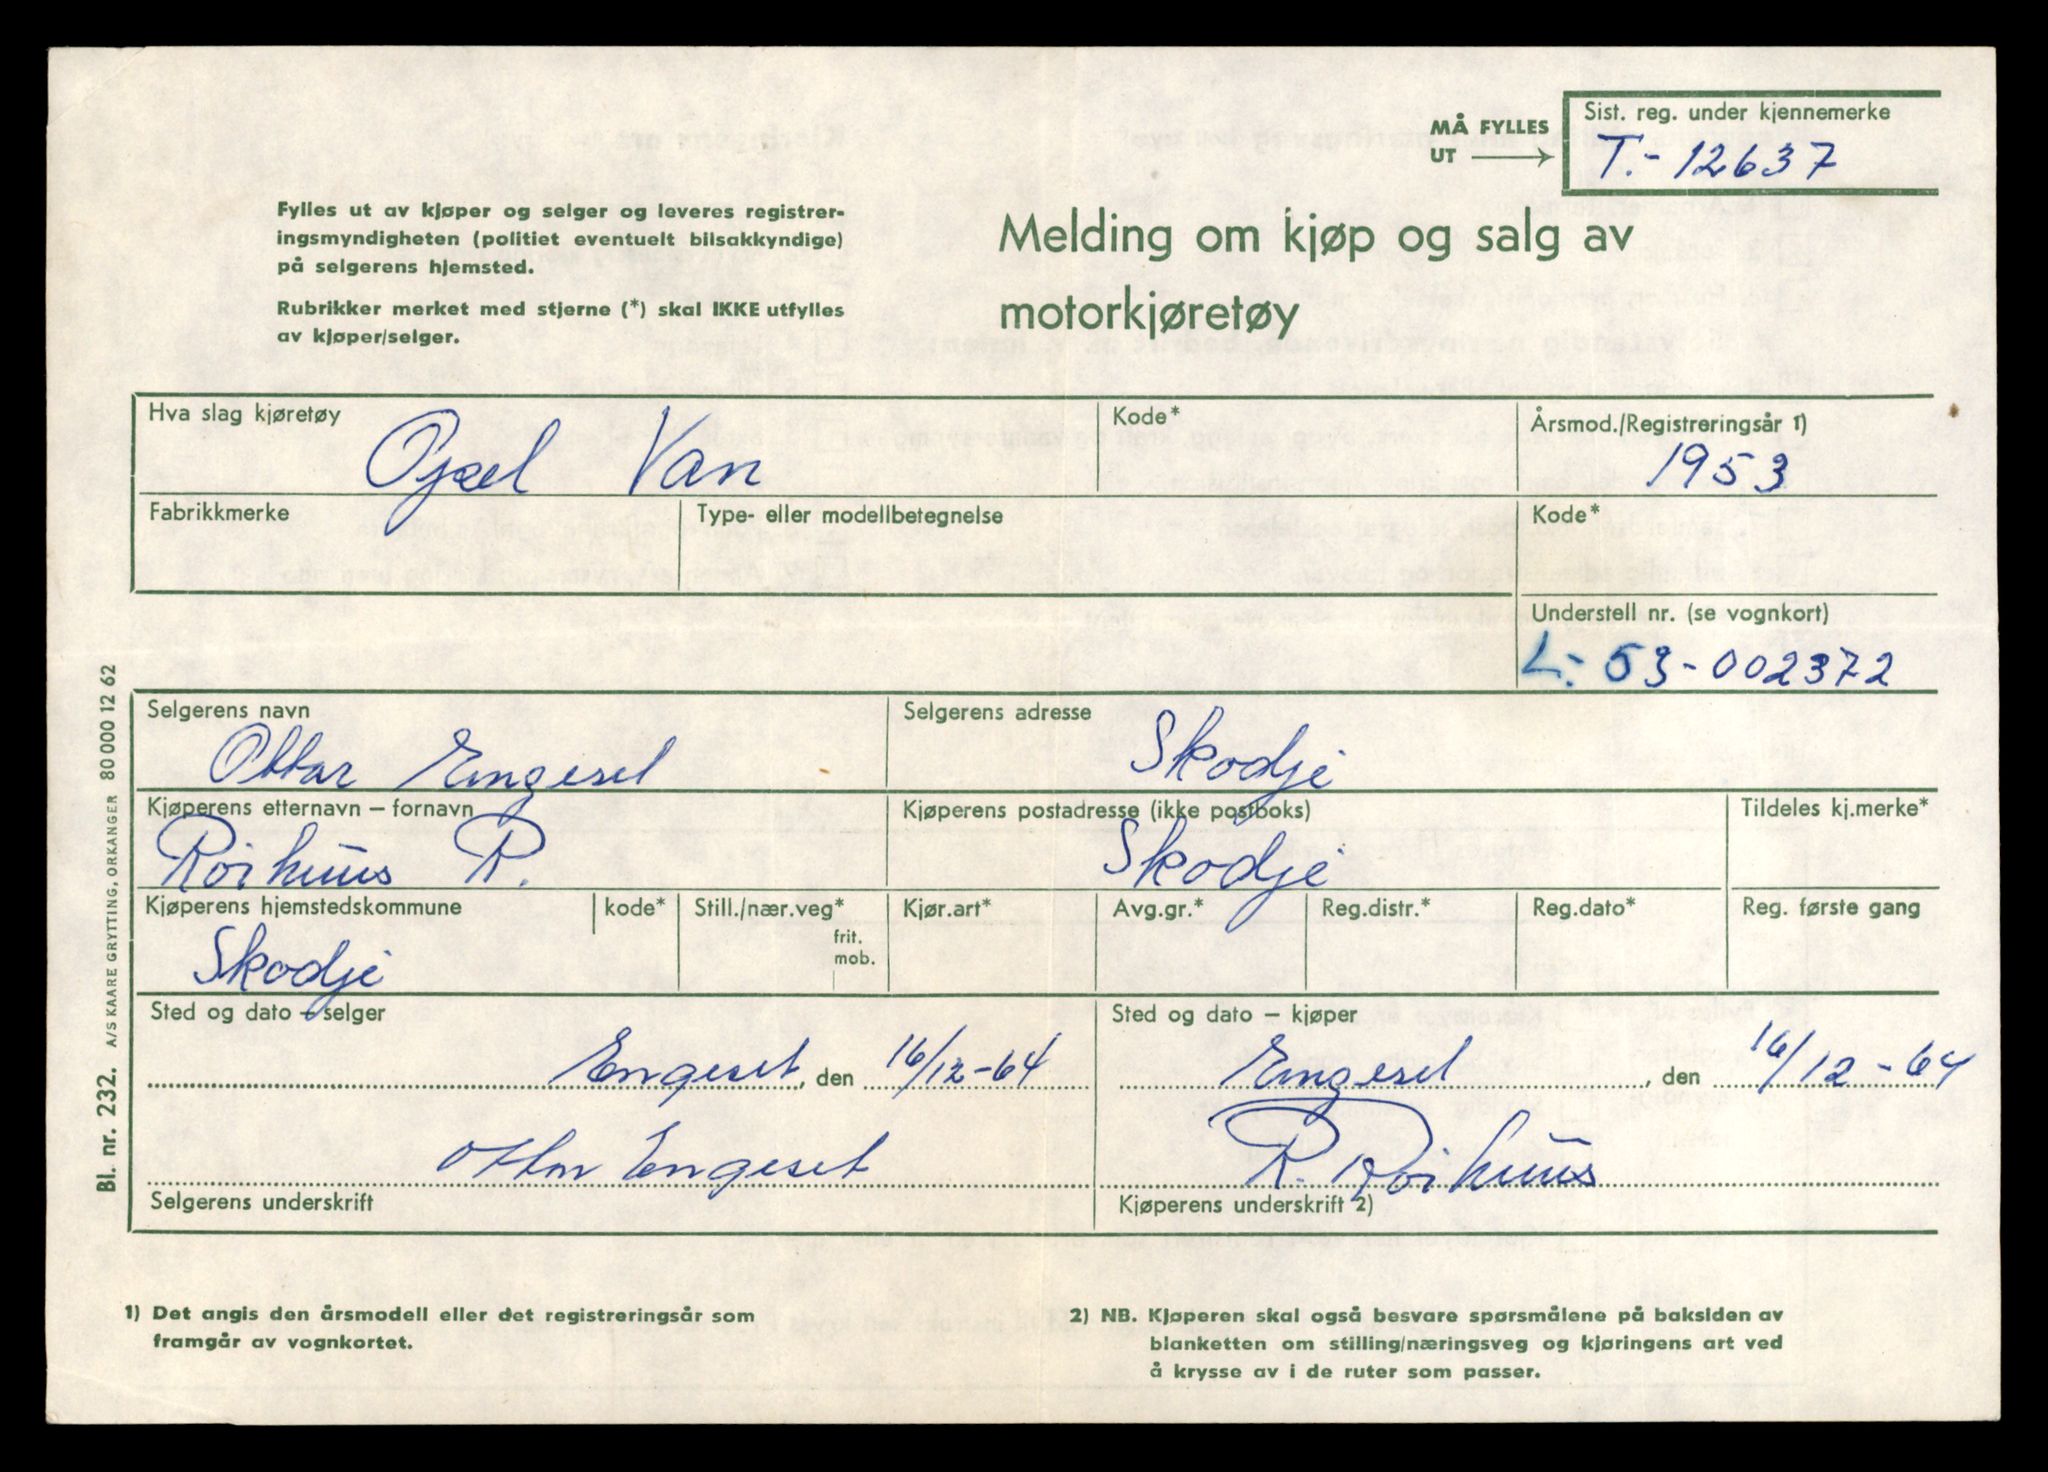 MÅ FYLLES
UT
Sist. reg. under kjennemerke
T.- 12637
Fylles ut av kjøper og selger og leveres registrer-
ingsmyndigheten (politiet eventuelt bilsakkyndige)
på selgerens hjemsted.
Rubrikker merket med stjerne (*) skal IKKE utfylles
av kjøper/selger.
Melding om kjøp og salg av
motorkjøretøy
Hva slag kjøretøy
Opel Van
Kode*
Årsmod./Registreringsår 1)
1953
Fabrikkmerke
Type- eller modellbetegnelse
Kode*
Understell nr. (se vognkort)
L.- 53-002372
Selgerens navn
Ottar Engeset
Selgerens adresse
Skodje
Kjøperens etternavn – fornavn
Roihuus R.
Kjøperens postadresse (ikke postboks)
Skodje
Tildeles kj.merke*
Kjøperens hjemstedskommune
Skodje
kode*
Still./nær.veg*
frit.
mob.
Kjør.art*
Avg.gr.*
Reg.distr.*
Reg.dato*
Reg. første gang
Sted og dato – selger
Engeset, den 16/12-64
Ottar Engeset
Selgerens underskrift
Sted og dato – kjøper
Engeset, den 16/12-64
R. Roihuus
Kjøperens underskrift 2)
Bl. nr. 232. A/S KAARE GRYTTING, ORKANGER 80 000 12 62
1) Det angis den årsmodell eller det registreringsår som
framgår av vognkortet.
2) NB. Kjøperen skal også besvare spørsmålene på baksiden av
blanketten om stilling/næringsveg og kjøringens art ved
å krysse av i de ruter som passer.